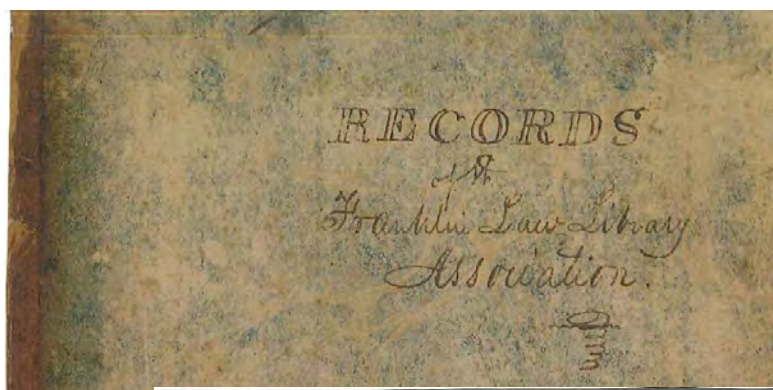 RECORDS
of the
Franklin Law Library
Association.